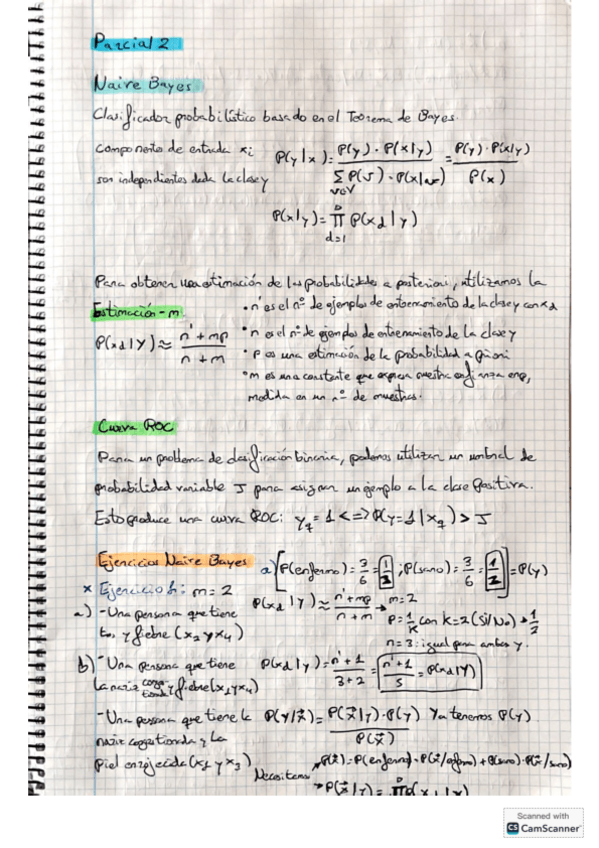 Parcial 2
Naive Bayes
Clasificador probabilístico basado en el Teorema de Bayes.
Componentes de entrada xi
son independientes dada la clase y
P(y|x) = P(y) · P(x|y) / Σ v∈V P(v) · P(x|v) = P(y) · P(x|y) / P(x)
P(x|y) = D ∏ d=1 P(xd|y)
Para obtener una estimación de las probabilidades a posteriori, utilizamos la
Estimación - m.
P(xd|y) ≈ n' + mp / n + m
• n' es el nº de ejemplos de entrenamiento de la clase y con xd
• n es el nº de ejemplos de entrenamiento de la clase y
• p es una estimación de la probabilidad a priori
• m es una constante que expresa nuestra confianza en p,
medida en un nº de muestras.
Curva ROC
Para un problema de clasificación binaria, podemos utilizar un umbral de
probabilidad variable J para asignar un ejemplo a la clase positiva.
Esto produce una curva ROC: yq = 1 <=> P(y=1|xq) > J
Ejercicios Naive Bayes
a) [P(enfermo) = 3/6 = 1/2 ; P(sano) = 3/6 = 1/2] = P(y)
x Ejercicio 1: m = 2
a) - Una persona que tiene
tos y fiebre (x2 y x4)
P(xd|y) ≈ n' + mp / n + m → m = 2
p = 1/K con k = 2 (Si/No) → 1/2
n = 3: igual para ambos y.
b) - Una persona que tiene
la nariz congestionada y fiebre (x1 y x4)
P(xd|y) = n' + 1 / 3 + 2 = n' + 1 / 5 = P(xd|y)
- Una persona que tiene la
nariz congestionada y la
piel enrojecida (x1 y x3)
P(y/x⃗) = P(x⃗|y) · P(y) / P(x⃗) Ya tenemos P(y).
Necesitamos
→ P(x⃗) = P(enfermo) · P(x⃗/enfermo) + P(sano) · P(x⃗/sano)
→ P(x⃗|y) =
Scanned with
CS CamScanner